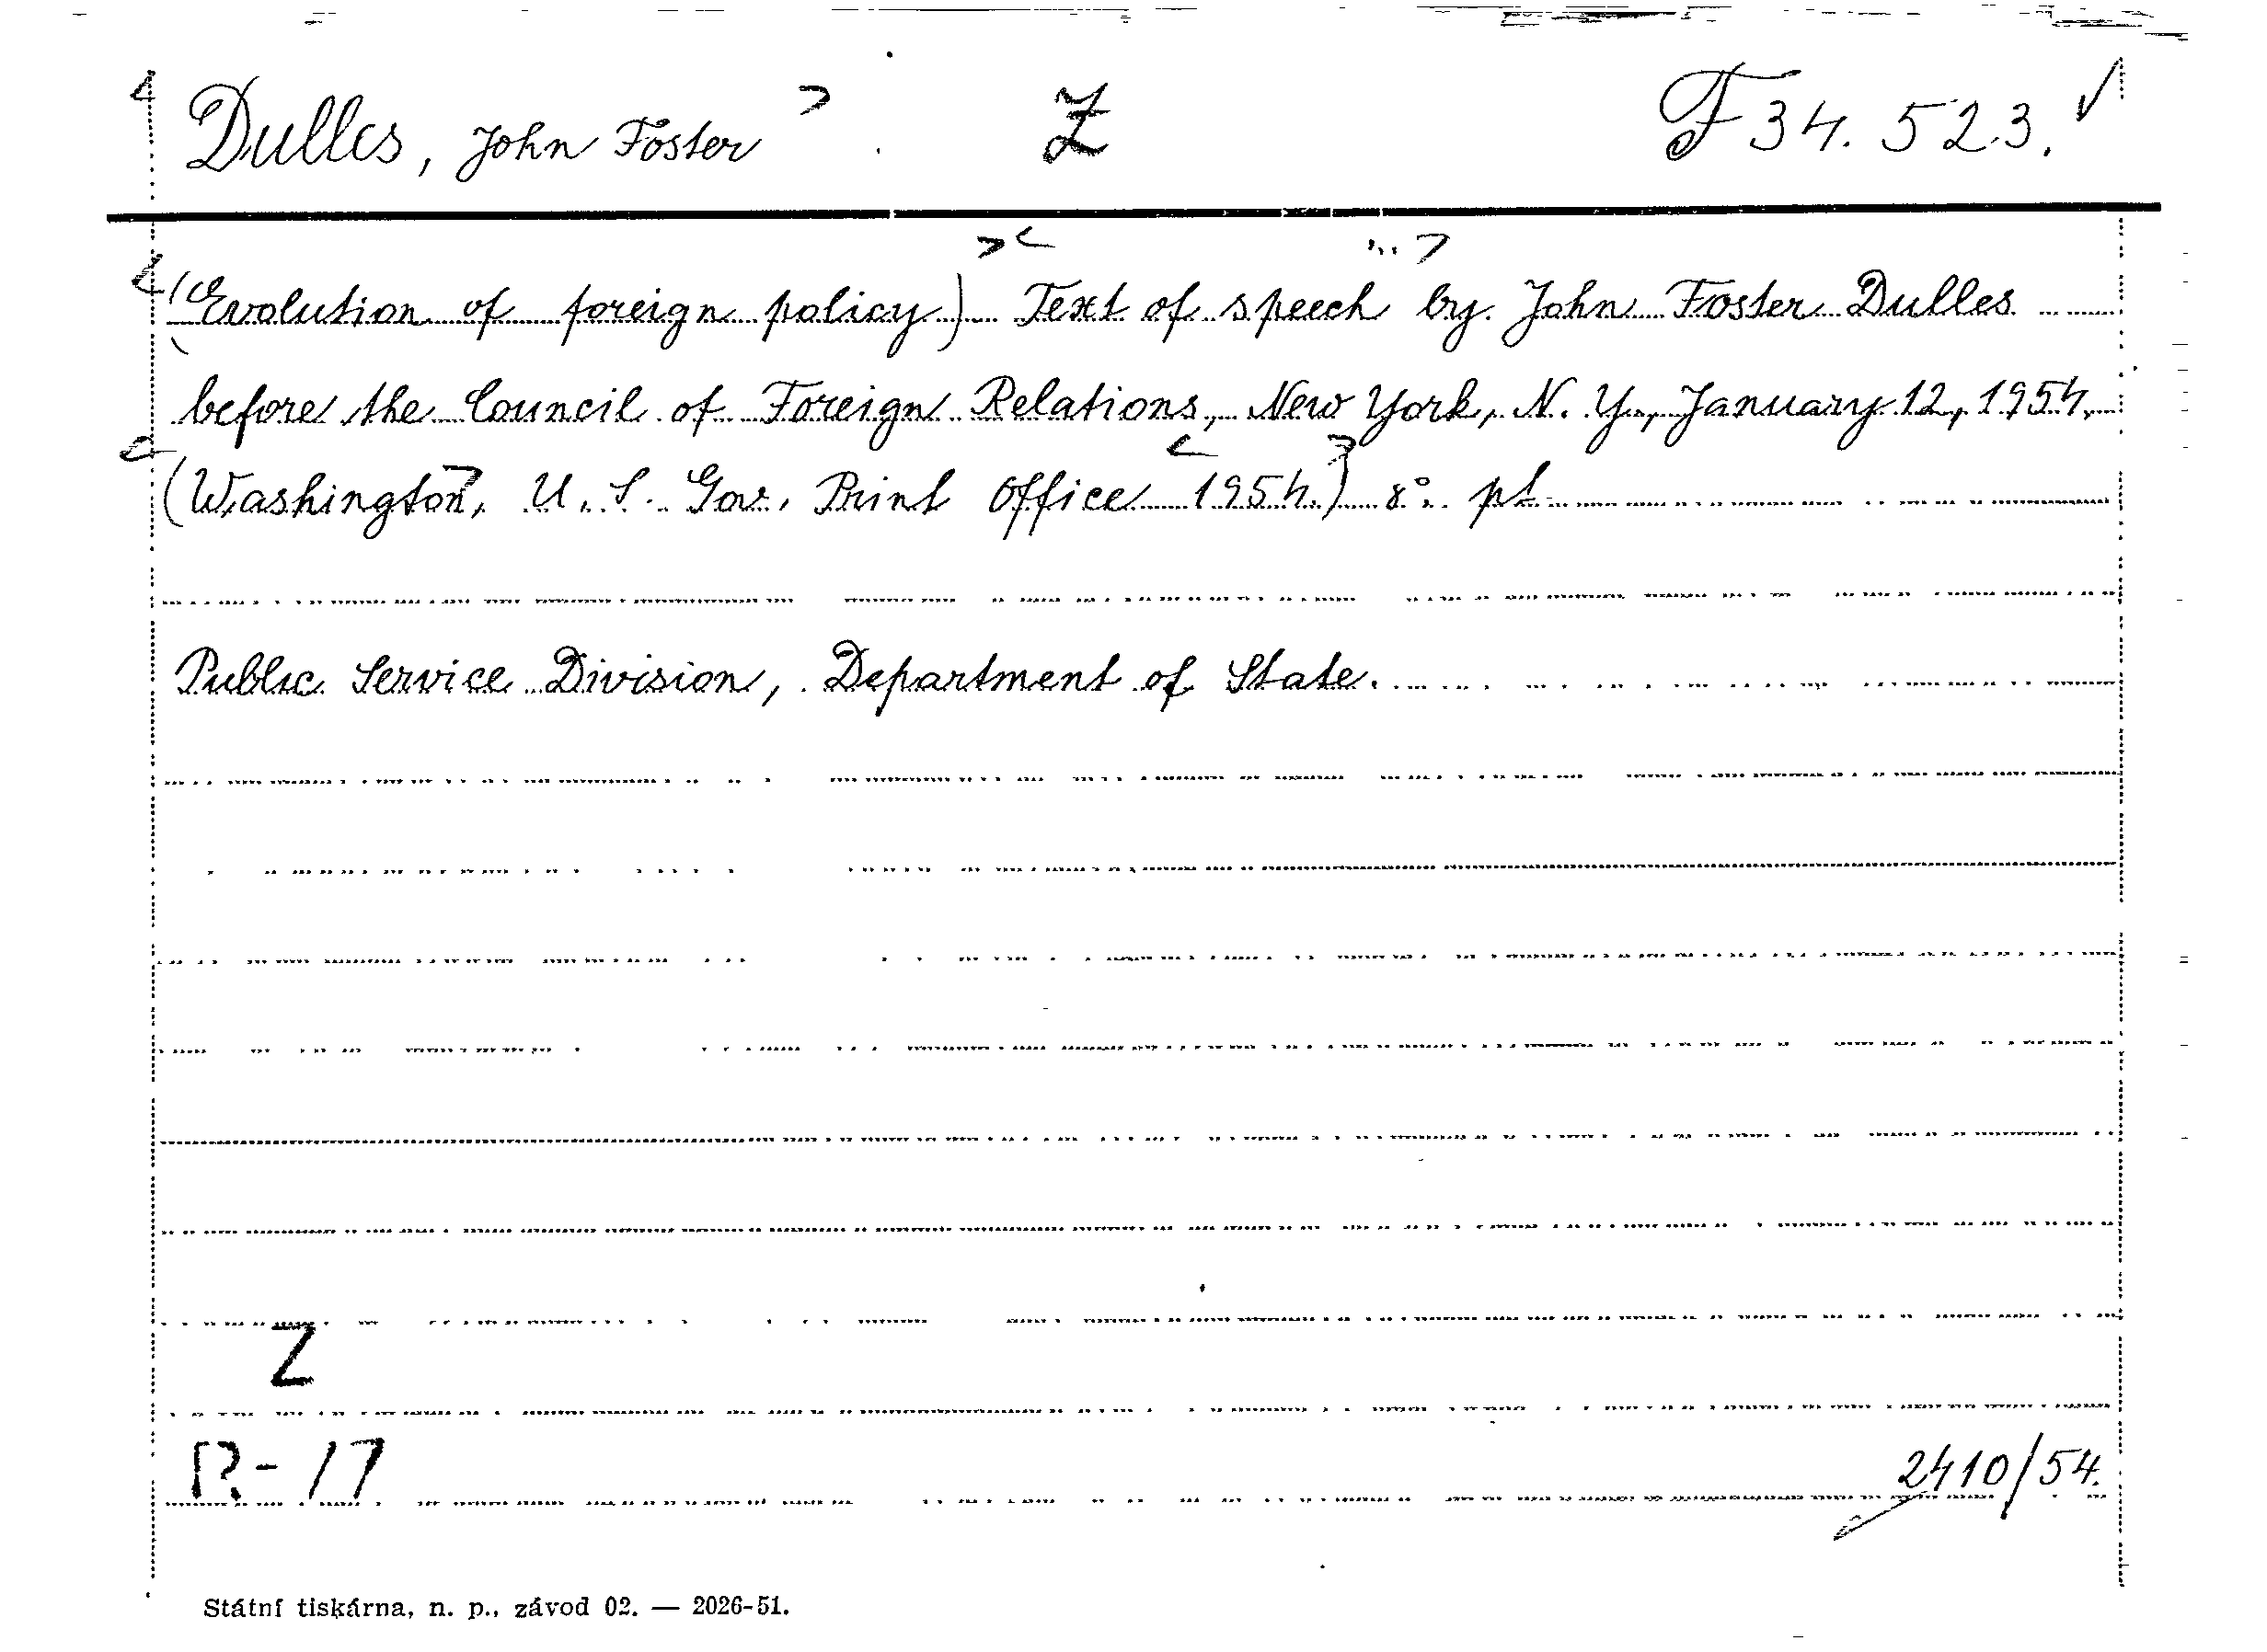 Dulles, John Foster Z F 34.523.
(Evolution of foreign policy) Text of speech by John Foster Dulles
before the Council of Foreign Relations, New York, N. Y., January 12, 1954.
(Washington, U. S. Gov. Print Office 1954.) 8°. pt
Public Service Division, Department of State.
Z
R-17 2410/54.
Státní tiskárna, n. p., závod 02. — 2026-51.